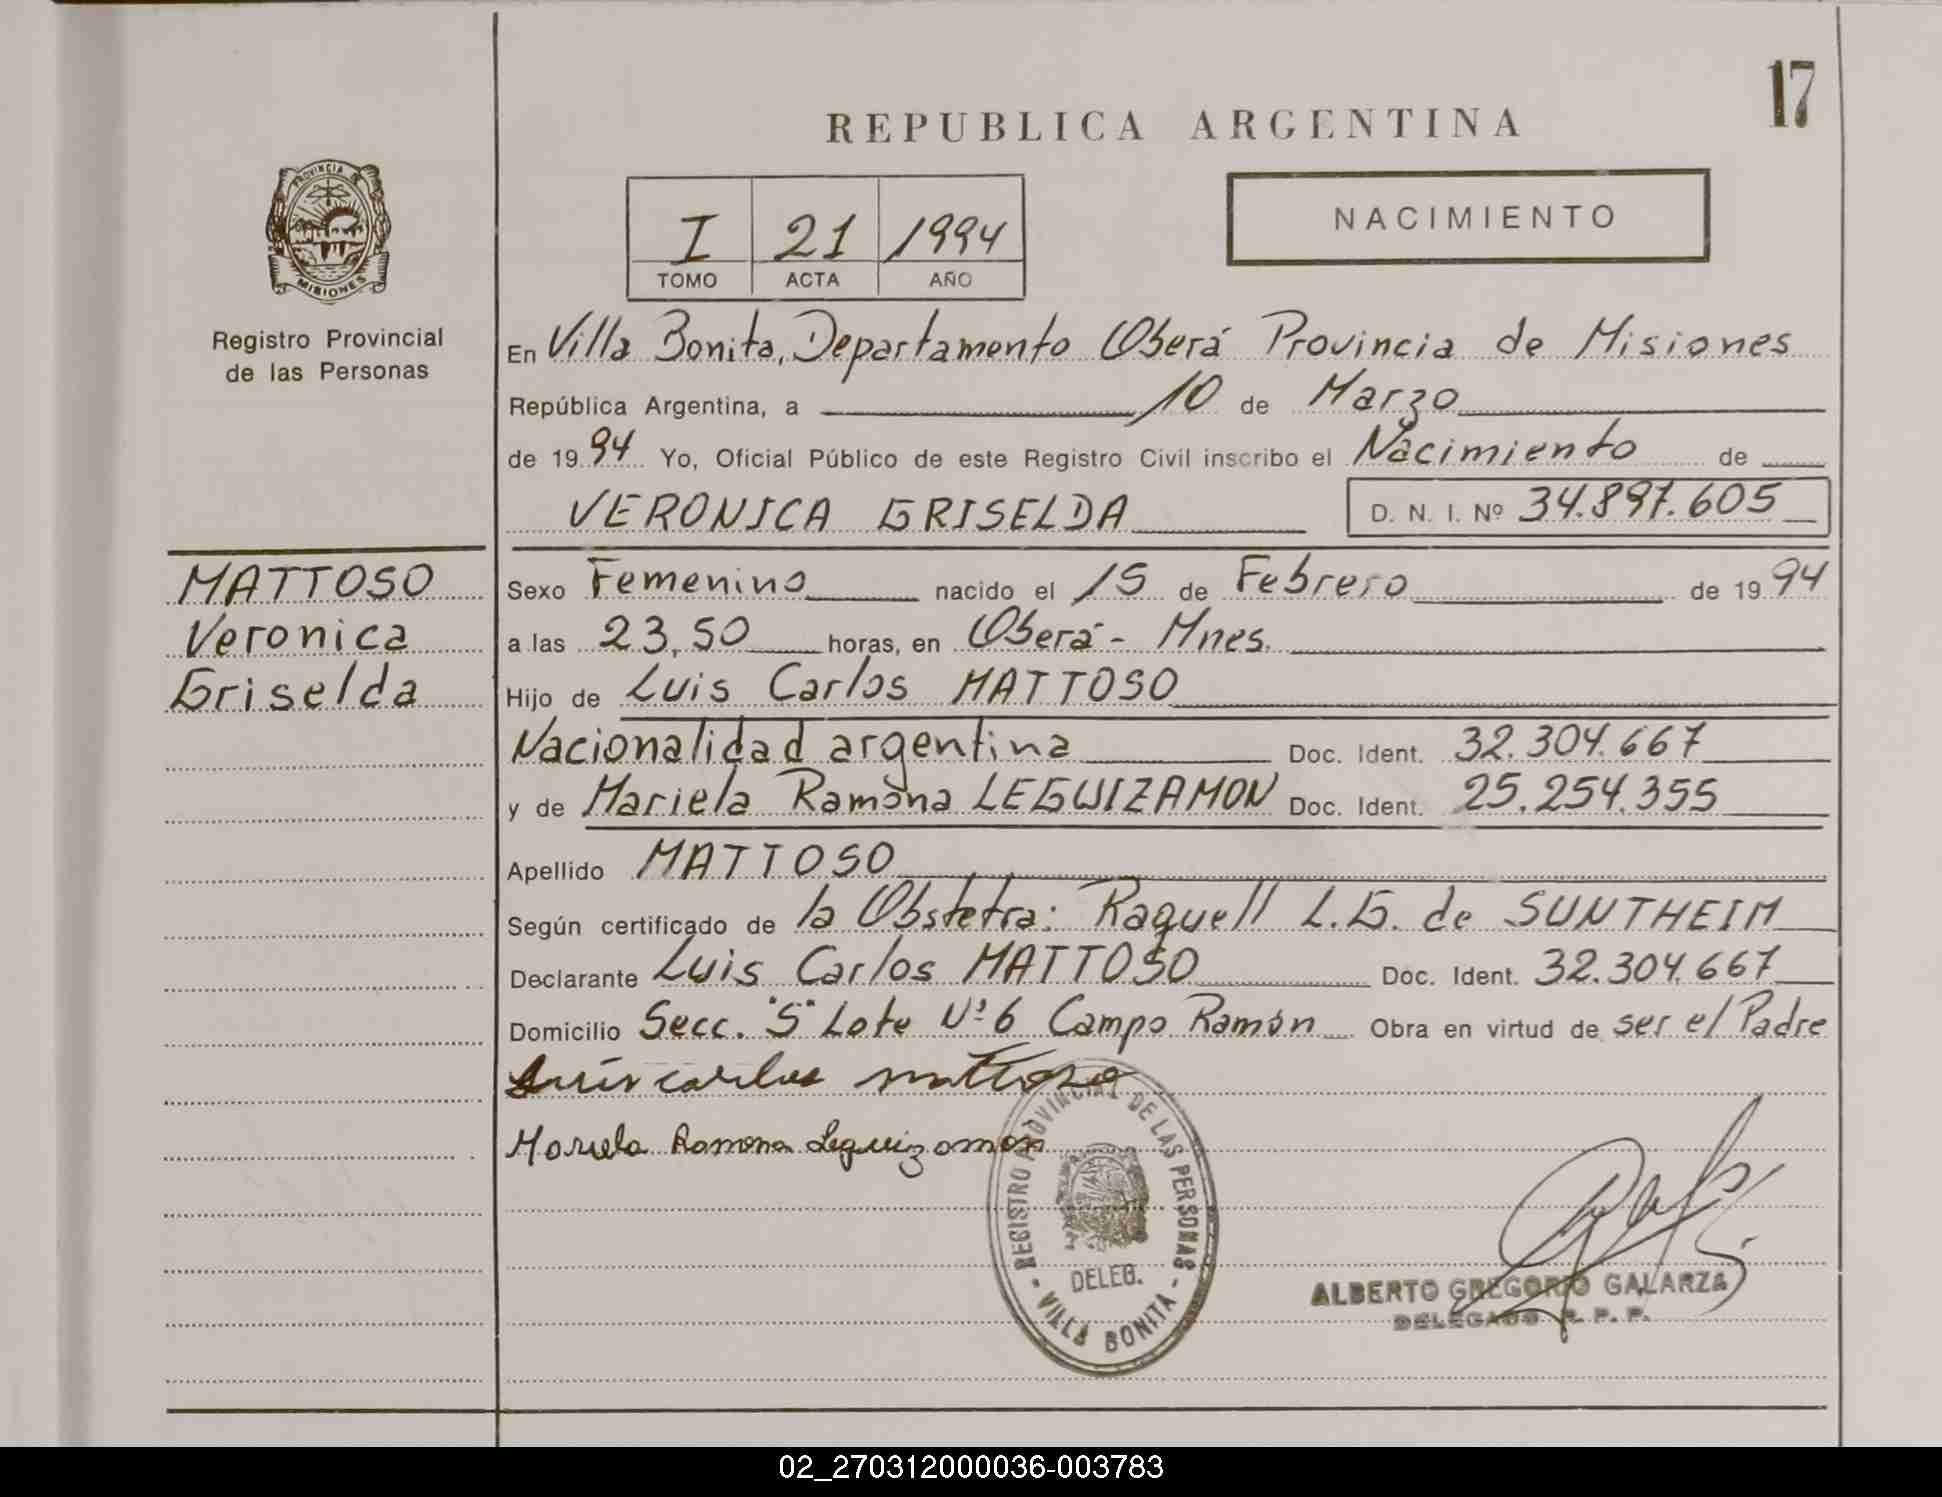 17
REPUBLICA ARGENTINA
PROVINCIA DE
MISIONES
Registro Provincial
de las Personas
I 21 1994
TOMO ACTA AÑO
NACIMIENTO
En Villa Bonita, Departamento Oberá Provincia de Misiones
República Argentina, a 10 de Marzo
de 1994 Yo, Oficial Público de este Registro Civil inscribo el Nacimiento de
VERONICA GRISELDA D. N. I. Nº 34.897.605
MATTOSO
Veronica
Griselda
Sexo Femenino nacido el 15 de Febrero de 1994
a las 23,50 horas, en Oberá - Mnes.
Hijo de Luis Carlos MATTOSO
Nacionalidad argentina Doc. Ident. 32.304.667
y de Mariela Ramona LEGUIZAMON Doc. Ident. 25.254.355
Apellido MATTOSO
Según certificado de la Obstetra: Raquell L.G. de SUNTHEIM
Declarante Luis Carlos MATTOSO Doc. Ident. 32.304.667
Domicilio Secc. "S" Lote Nº 6 Campo Ramón Obra en virtud de ser el Padre
Luis carlos mattoso
Mariela Ramona Leguizamon
REGISTRO PROVINCIAL DE LAS PERSONAS
DELEG.
- VILLA BONITA -
ALBERTO GREGORIO GALARZA
DELEGADO R. P. P.
02_270312000036-003783